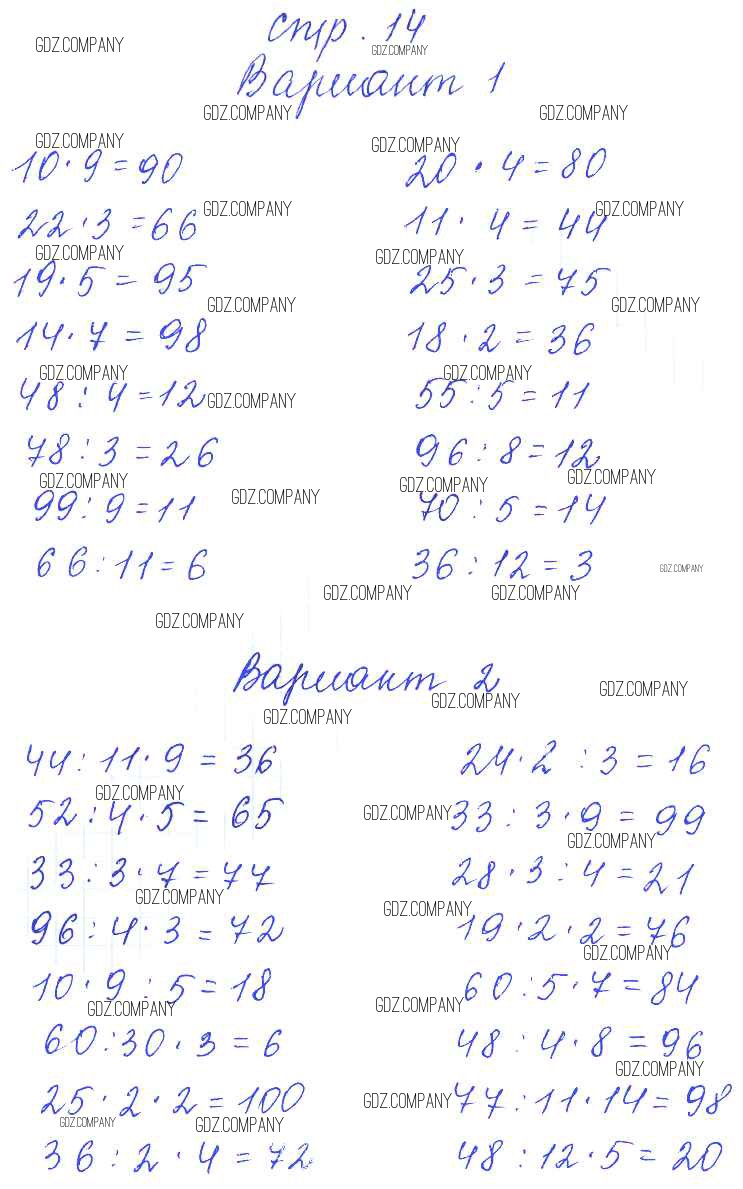 стр. 14
GDZ.COMPANY
GDZ.COMPANY
Вариант 1
GDZ.COMPANY GDZ.COMPANY
GDZ.COMPANY GDZ.COMPANY
10 · 9 = 90 20 · 4 = 80
GDZ.COMPANY GDZ.COMPANY
22 · 3 = 66 11 · 4 = 44
GDZ.COMPANY GDZ.COMPANY
19 · 5 = 95 25 · 3 = 75
GDZ.COMPANY GDZ.COMPANY
14 · 7 = 98 18 · 2 = 36
GDZ.COMPANY GDZ.COMPANY
48 : 4 = 12 55 : 5 = 11
GDZ.COMPANY
78 : 3 = 26 96 : 8 = 12
GDZ.COMPANY GDZ.COMPANY GDZ.COMPANY
GDZ.COMPANY
99 : 9 = 11 70 : 5 = 14
66 : 11 = 6 36 : 12 = 3
GDZ.COMPANY
GDZ.COMPANY GDZ.COMPANY
GDZ.COMPANY
Вариант 2
GDZ.COMPANY GDZ.COMPANY
GDZ.COMPANY
44 : 11 · 9 = 36 24 · 2 : 3 = 16
GDZ.COMPANY
52 : 4 · 5 = 65 33 : 3 · 9 = 99
GDZ.COMPANY GDZ.COMPANY
33 : 3 · 7 = 77 28 · 3 : 4 = 21
GDZ.COMPANY GDZ.COMPANY
96 : 4 · 3 = 72 19 · 2 · 2 = 76
GDZ.COMPANY
10 · 9 : 5 = 18 60 : 5 · 7 = 84
GDZ.COMPANY GDZ.COMPANY
60 : 30 · 3 = 6 48 : 4 · 8 = 96
GDZ.COMPANY
25 · 2 · 2 = 100 77 : 11 · 14 = 98
GDZ.COMPANY
GDZ.COMPANY GDZ.COMPANY
36 : 2 · 4 = 72 48 : 12 · 5 = 20